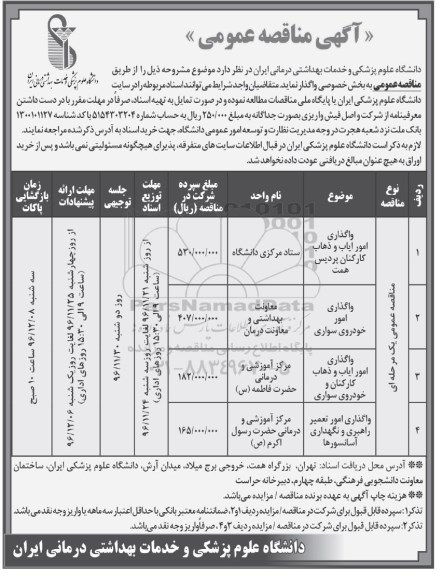 « آگهی مناقصه عمومی »
دانشگاه علوم پزشکی و خدمات بهداشتی درمانی ایران
دانشگاه علوم پزشکی و خدمات بهداشتی درمانی ایران در نظر دارد موضوع مشروحه ذیل را از طریق
مناقصه عمومی به بخش خصوصی واگذار نماید. متقاضیان واجد شرایط می توانند اسناد مربوطه را در سایت
دانشگاه علوم پزشکی ایران یا پایگاه ملی مناقصات مطالعه نموده و در صورت تمایل به تهیه اسناد، صرفاً در مهلت مقرر با در دست داشتن
معرفینامه از شرکت و اصل فیش واریزی بصورت جداگانه به مبلغ ۲۵۰/۰۰۰ ریال به حساب شماره ۵۱۵۴۳۰۳۲۰۴ با کد شناسه ۱۳۰۰۱۰۱۱۲۷
بانک ملت نزد شعبه هجرت در وجه مدیریت نظارت و توسعه امور عمومی دانشگاه، جهت خرید اسناد به آدرس ذکر شده مراجعه نمایند.
لازم به ذکر است دانشگاه علوم پزشکی ایران در قبال اطلاعات سایت های متفرقه، پذیرای هیچگونه مسئولیتی نمی باشد و پس از خرید
اوراق به هیچ عنوان مبالغ دریافتی عودت داده نخواهد شد.
ردیف
نوع مناقصه
موضوع
نام واحد
مبلغ سپرده شرکت در مناقصه (ریال)
مهلت توزیع اسناد
جلسه توجیهی
مهلت ارائه پیشنهادات
زمان بازگشایی پاکات
مناقصه عمومی یک مرحله ای
۱
واگذاری امور ایاب و ذهاب کارکنان پردیس همت
ستاد مرکزی دانشگاه
۵۳۰/۰۰۰/۰۰۰
۲
واگذاری امور خودروی سواری
معاونت بهداشتی و معاونت درمان
۴۰۷/۰۰۰/۰۰۰
۳
واگذاری امور ایاب و ذهاب کارکنان و خودروی سواری
مرکز آموزشی و درمانی حضرت فاطمه (س)
۱۸۲/۰۰۰/۰۰۰
۴
واگذاری امور تعمیر راهبری و نگهداری آسانسورها
مرکز آموزشی و درمانی حضرت رسول اکرم (ص)
۱۶۵/۰۰۰/۰۰۰
از روز شنبه ۹۶/۱۱/۲۱ لغایت روز سه شنبه ۹۶/۱۱/۲۴
(ساعت ۹ الی ۱۵:۳۰ روزهای اداری)
روز دو شنبه ۹۶/۱۱/۳۰
از روز چهارشنبه ۹۶/۱۱/۲۵ لغایت روز یک شنبه ۹۶/۱۲/۰۶
(ساعت ۹ الی ۱۵:۳۰ روزهای اداری)
سه شنبه ۹۶/۱۲/۰۸ ساعت ۱۰ صبح
ParsNamadData
پایگاه اطلاع رسانی مناقصه و مزایده
** آدرس محل دریافت اسناد: تهران، بزرگراه همت، خروجی برج میلاد، میدان آرش، دانشگاه علوم پزشکی ایران، ساختمان
معاونت دانشجویی فرهنگی، طبقه چهارم، دبیرخانه حراست
** هزینه چاپ آگهی به عهده برنده مناقصه / مزایده می باشد.
تذکر۱: سپرده قابل قبول برای شرکت در مناقصه / مزایده ردیف ۱و۲، ضمانتنامه معتبر بانکی با حداقل اعتبار سه ماهه یا واریز وجه نقد می باشد.
تذکر۲: سپرده قابل قبول برای شرکت در مناقصه / مزایده ردیف ۳و۴، صرفاً واریز وجه نقد می باشد.
دانشگاه علوم پزشکی و خدمات بهداشتی درمانی ایران